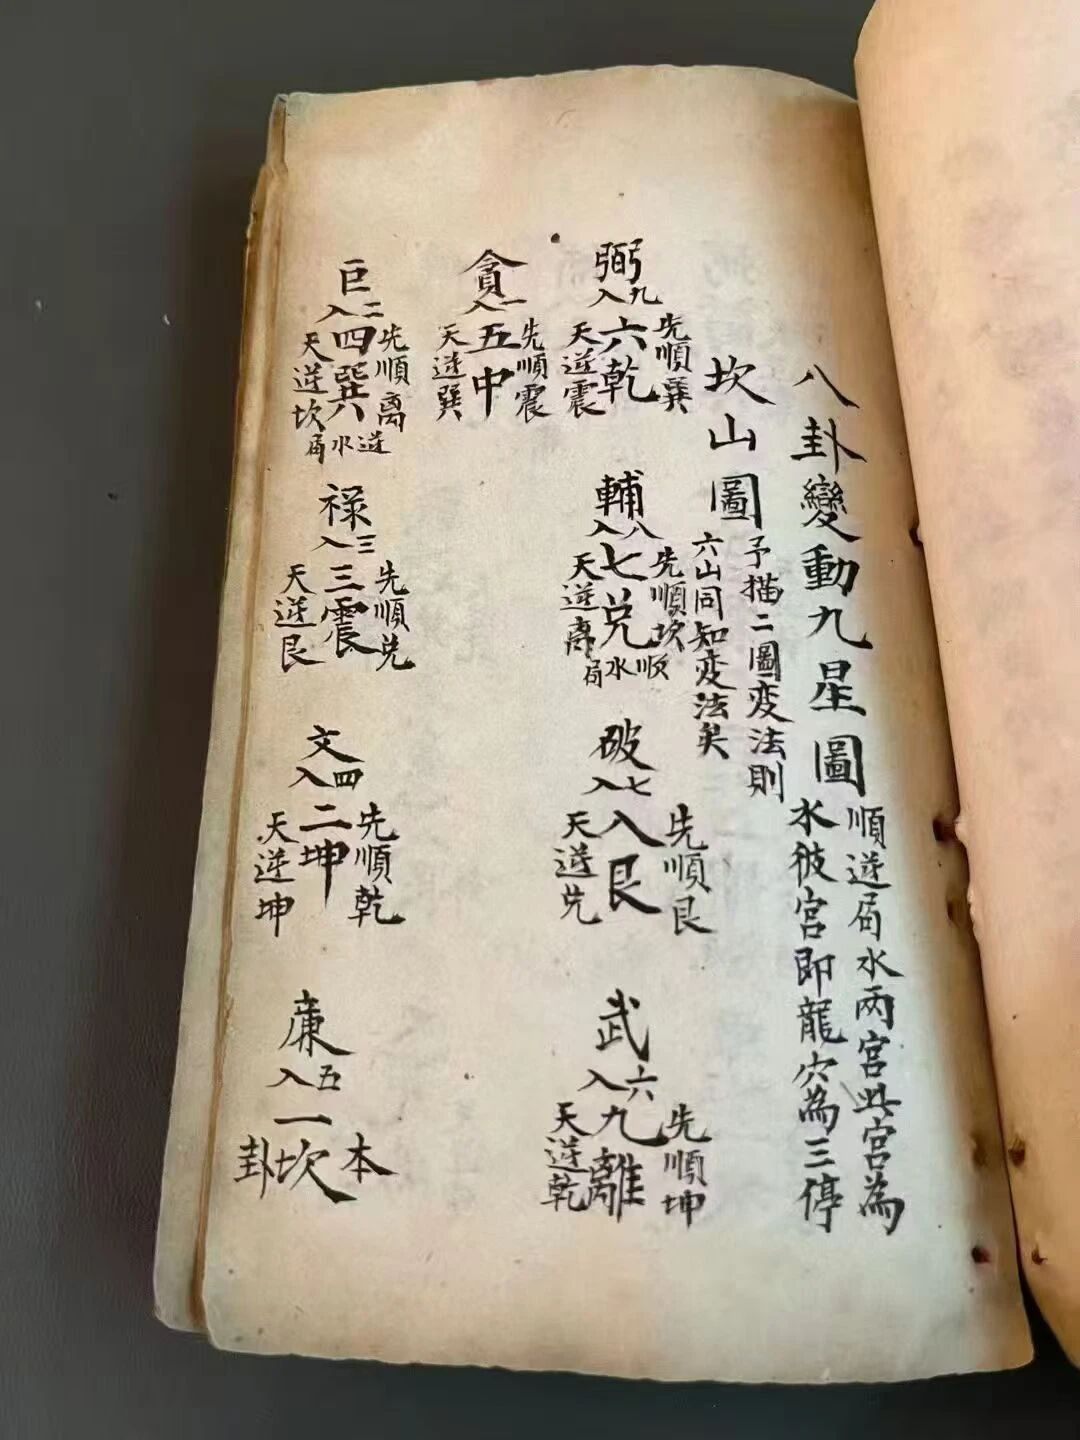 八卦變動九星圖
順逆局水兩宮此宮為
水彼宮即龍穴為三停
坎山圖
予描二圖变法則
六山同知变法矣
弼
九入
六乾
先順巽
天逆震
輔
八入
七兌
先順坎
天逆离
順水局
破
七入
八艮
先順艮
天逆兌
武
六入
九離
先順坤
天逆乾
貪
一入
五中
先順震
天逆巽
巨
二入
四巽
先順离
天逆坎
逆水局
禄
三入
三震
先順兌
天逆艮
文
四入
二坤
先順乾
天逆坤
廉
五入
一坎
本
卦